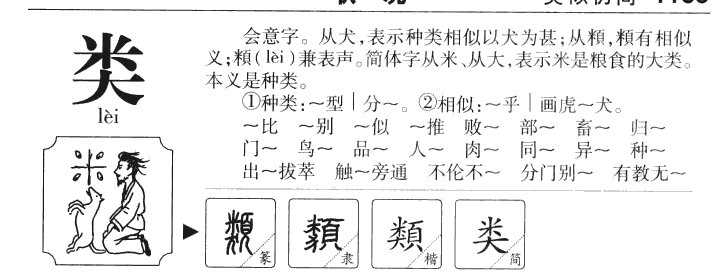 类
lèi
会意字。从犬,表示种类相似以犬为甚;从頪,頪有相似
义;頪(lèi)兼表声。简体字从米、从大,表示米是粮食的大类。
本义是种类。
①种类:～型｜分～。②相似:～乎｜画虎～犬。
～比 ～别 ～似 ～推 败～ 部～ 畜～ 归～
门～ 鸟～ 品～ 人～ 肉～ 同～ 异～ 种～
出～拔萃 触～旁通 不伦不～ 分门别～ 有教无～
類 篆 類 隶 類 楷 类 简